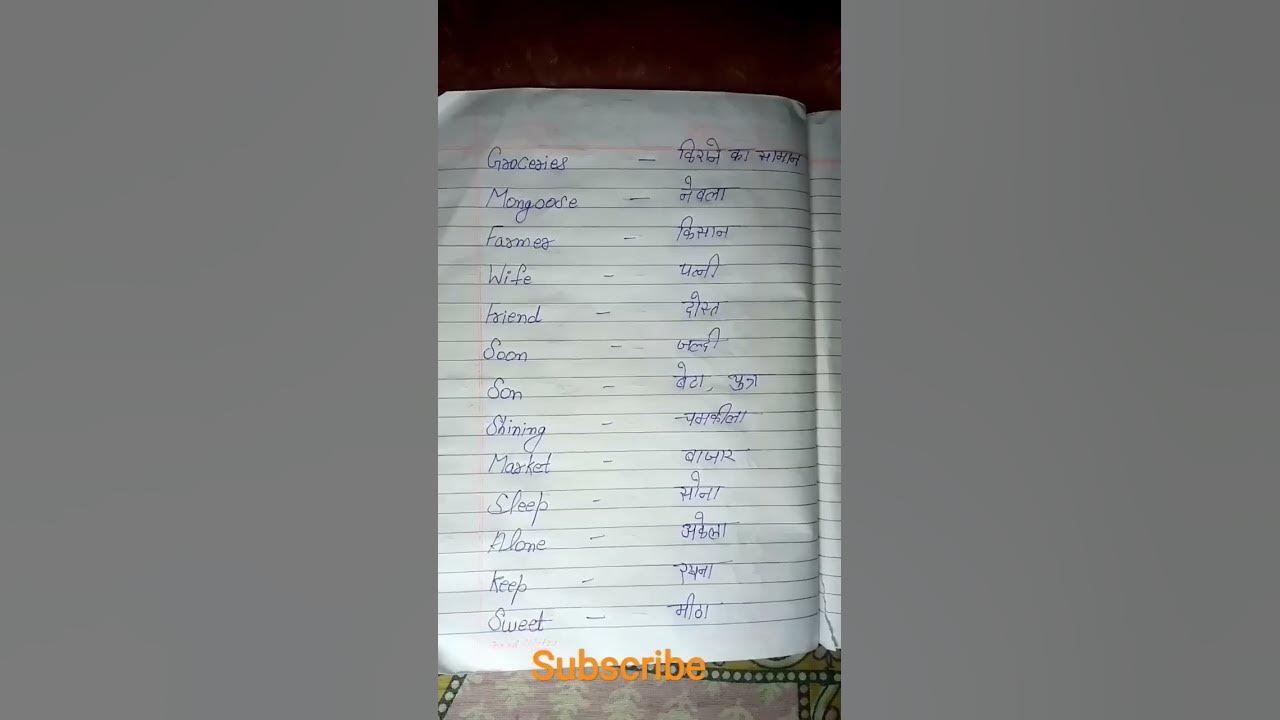 Groceries - किराने का सामान
Mongoose - नेवला
Farmer - किसान
Wife - पत्नी
Friend - दोस्त
Soon - जल्दी
Son - बेटा, पुत्र
Shining - चमकीला
Market - बाजार
Sleep - सोना
Alone - अकेला
Keep - रखना
Sweet - मीठा
Subscribe